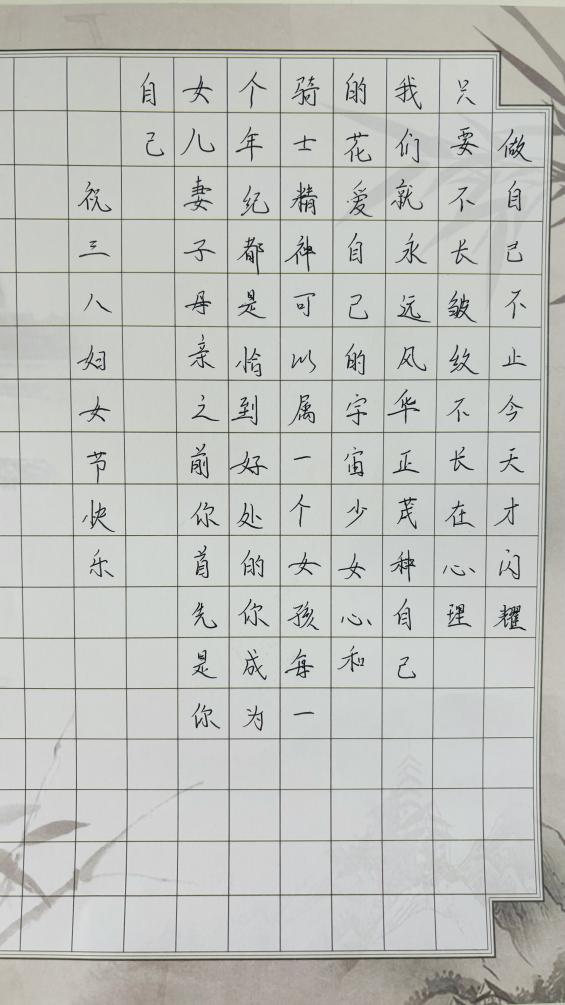 做自己不止今天才闪耀
只要不长皱纹不长在心理
我们就永远风华正茂种自己
的花爱自己的宇宙少女心和
骑士精神可以属一个女孩每一
个年纪都是恰到好处的你成为
女儿妻子母亲之前你首先是你
自己
祝三八妇女节快乐